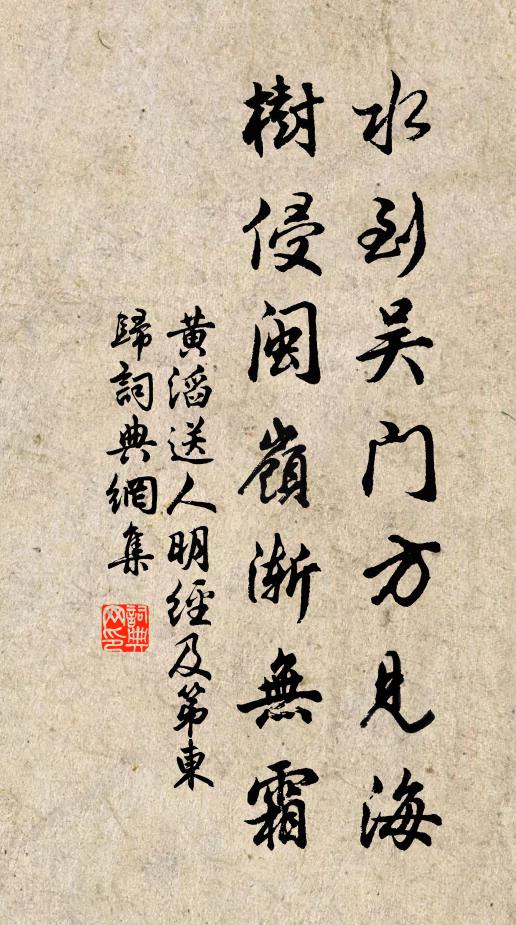 水到吳門方見海
樹侵閩嶺漸無霜
黃滔送人明經及第東
歸詞典網集
詞典
网印